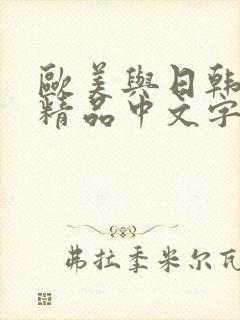 歐美與日韓
精品中文字
弗拉季米尔瓦